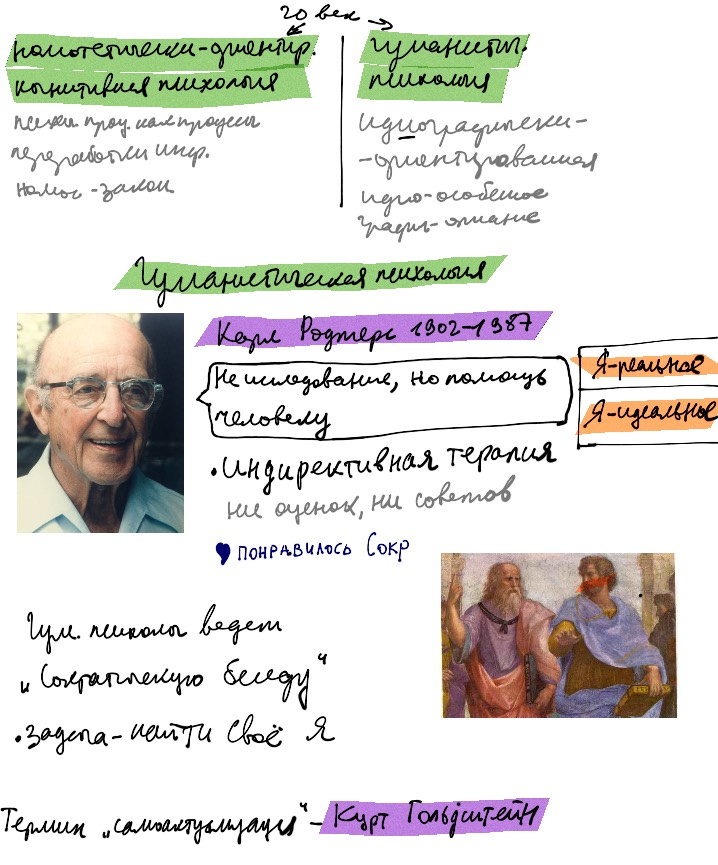 20 век
номотетически-ориентир.
когнитивная психология
психич. проц. как процессы
переработки инф.
номос - закон
гуманистич.
психология
идиографически-
-ориентированная
идио-особенное
графи-описание
Гуманистическая психология
Карл Роджерс 1902-1987
Не исследование, но помощь
человеку
Я-реальное
Я-идеальное
• Индирективная терапия
ни оценок, ни советов
понравилось Сокр
Гум. психолог ведет
„Сократическую беседу"
• Задача - найти своё Я
Термин „самоактуализация" - Курт Гольдштейн